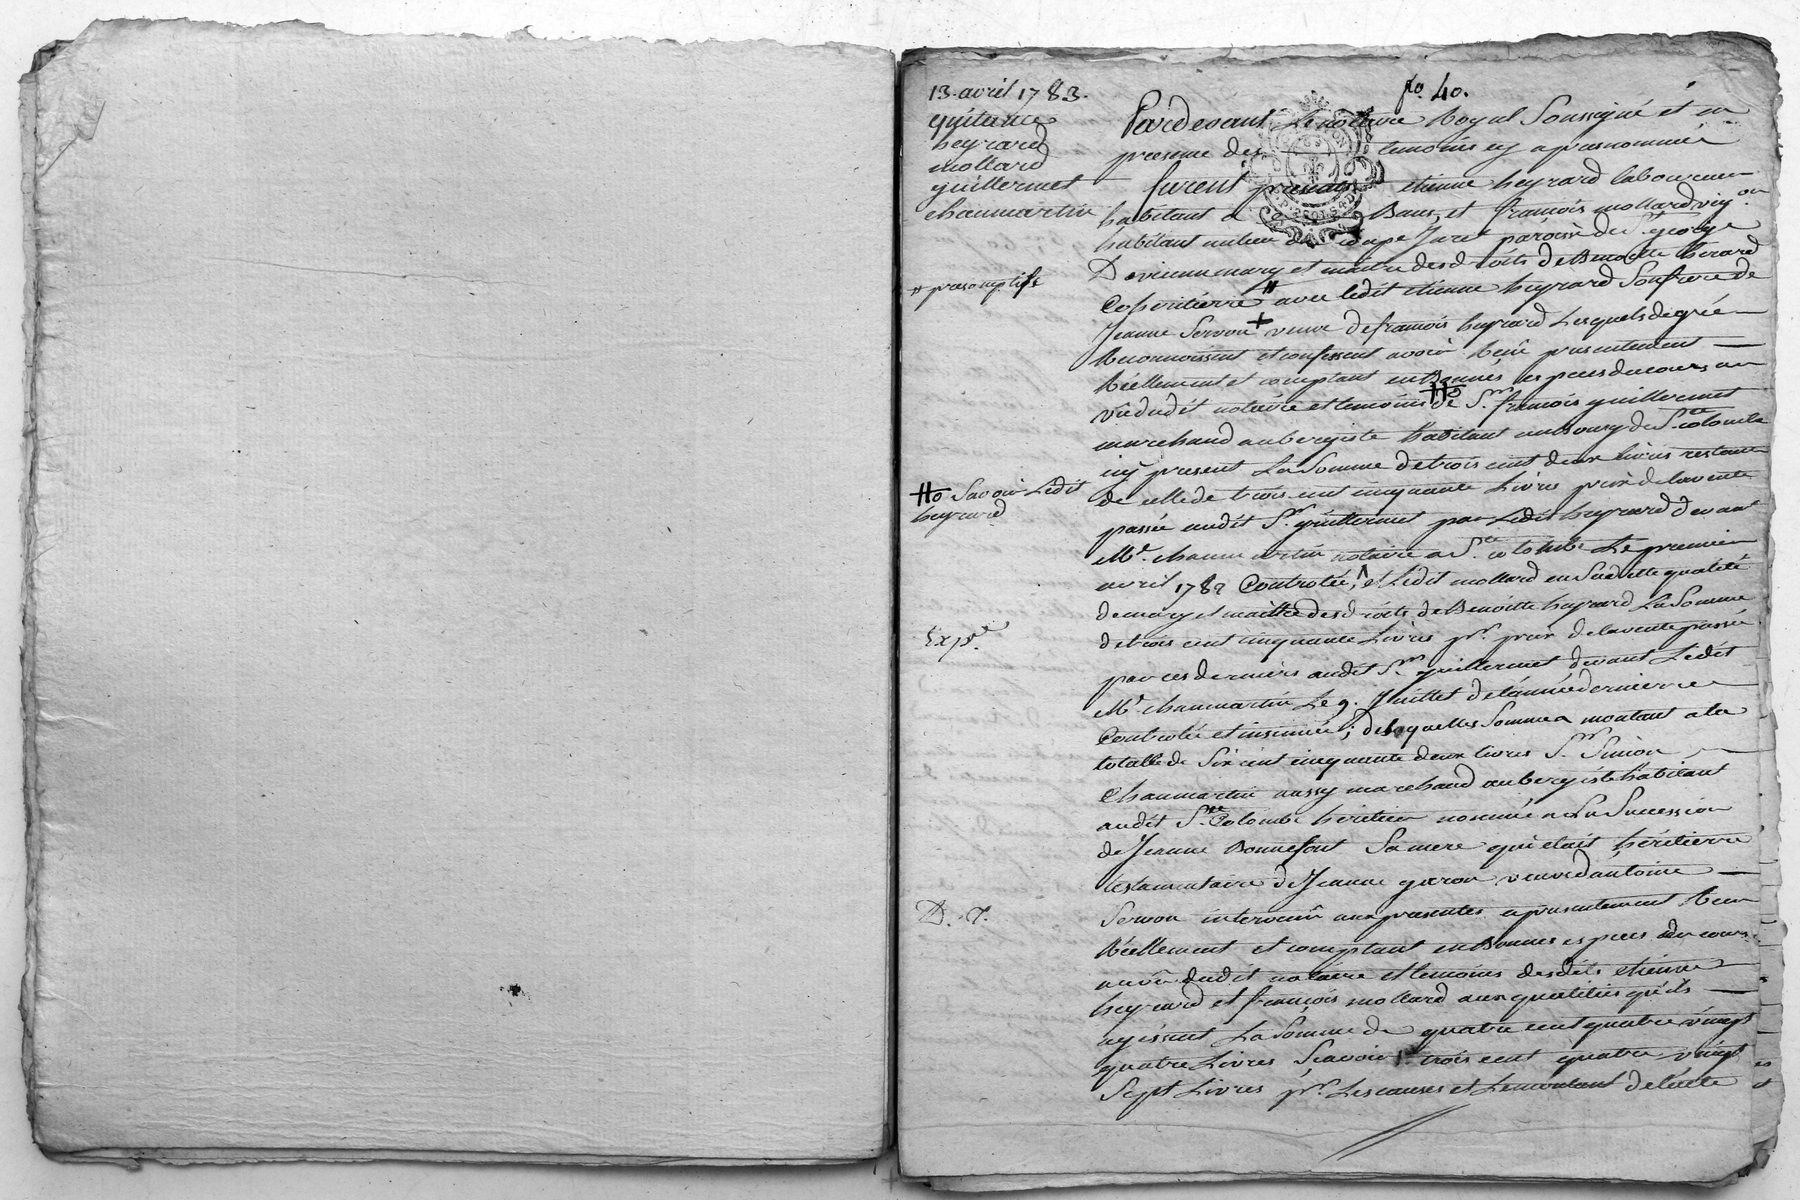 fo. 40.
13. avril 1783.
quitance
heyrard
mollard
guillermet
chaumartin
Pardevant Le notaire Royal Soussigné et en
presence des temoins cy apres nommés
furent presents etienne heyrard laboureur
habitant a Bans, et françois mollard vig.on
habitant au lieu de coupe Jaret paroisse de St george
De vienne mary et maitre des droits de Benoitte heirard
Cohéritière # avec ledit etienne heyrard Son frere de
# presomptifs
Jeanne Servon + veuve de françois heyrard Lesquels de gré
Reconnoissent et confessent avoir Reçû presentement
Réellement et comptant en Bonnes especes du cours au
vû dudit notaire et temoins de Sr. françois guillermet
marchand aubergiste habitant au bourg de Ste colombe
icy present La Somme de trois cent deux livres restante
de celle de trois cent cinquante Livres prix de la vente
#o Savoir Ledit
heyrard
passée audit Sr. guillermet par Ledit heyrard devant
Me. chaumartin notaire a Ste. colombe Le premier
avril 1782 Controlée, et Ledit mollard en Sa ditte qualité
de mary et maitre des droits de Benoitte heyrard La Somme
Expé.
de trois cent cinquante Livres pr. prix de la vente passée
par ces derniers audit Sr. guillermet devant Ledit
Me. chaumartin Le 9. Juillet de l'année derniere
Controlée et insinuée; desquelles Sommes montant a la
totalle de Six cent cinquante deux livres Sr. Simon
Chaumartin aussy marchand aubergiste habitant
audit Ste. Colombe héritier nommé a La Succession
de Jeanne Bonnefont Sa mere qui etait héritierre
testamentaire de Jeanne garon veuve d'antoine
D. 7.
Servon intervenû aux presentes a presentement Reçu
Réellement et comptant en Bonnes especes du cours
au vû dudit notaire et temoins desdits etienne
heyrard et françois mollard aux qualités qu'ils
agissent La Somme de quatre cent quatre vingt
quatre Livres Scavoir trois cent quatre vingt
Sept Livres pr. Les causes et Le montant de l'acte